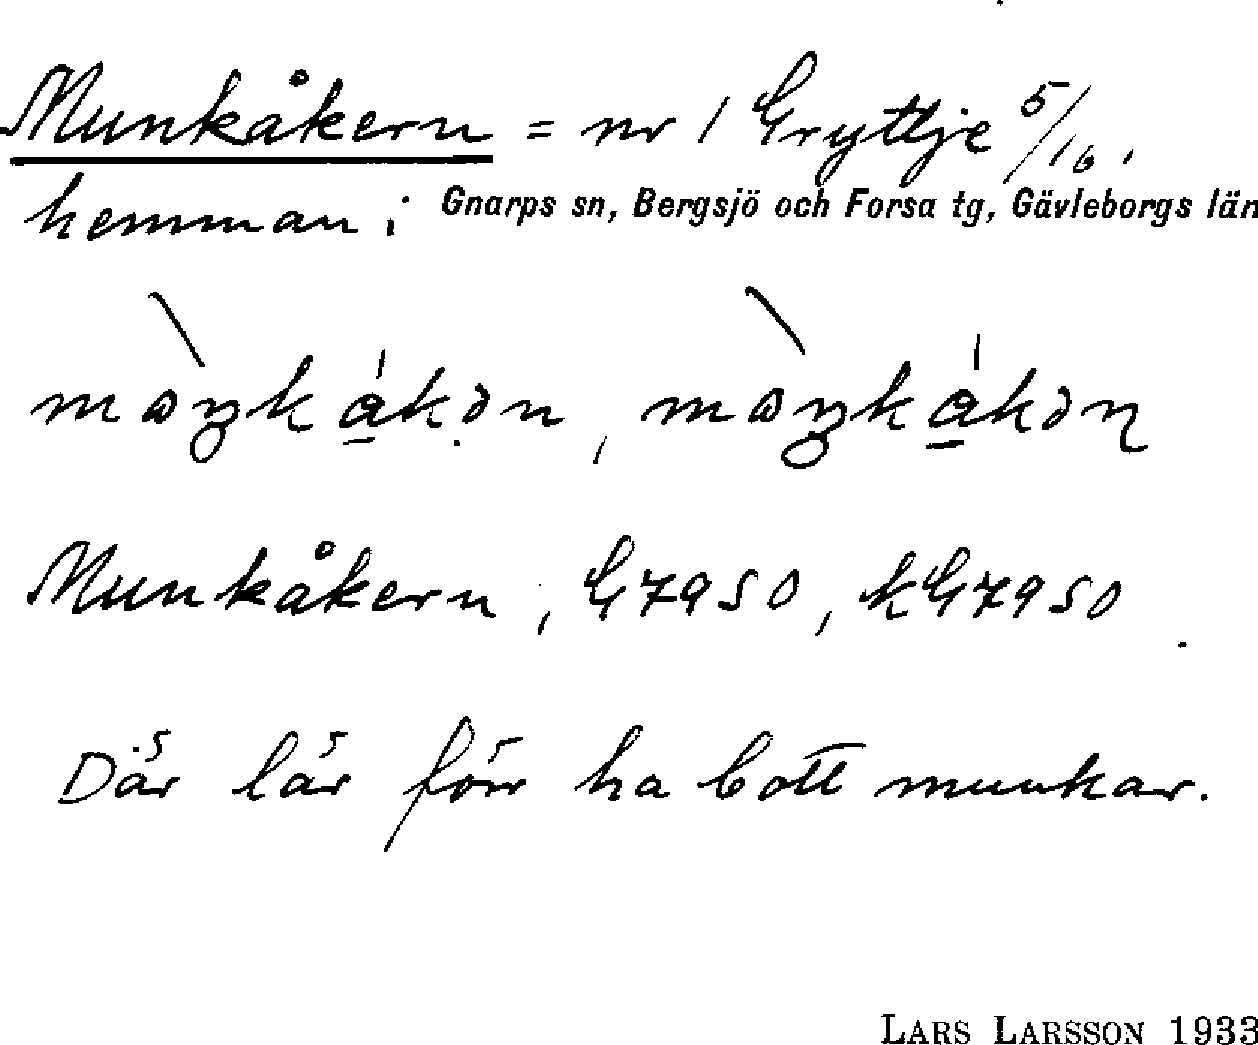 Munkåkern = nr 1 Gryttje 5/16.
hemman i Gnarps sn, Bergsjö och Forsa tg, Gävleborgs län
Munkåkern, G7950, kG7950
Där lär förr ha bott munkar.
LARS LARSSON 1933